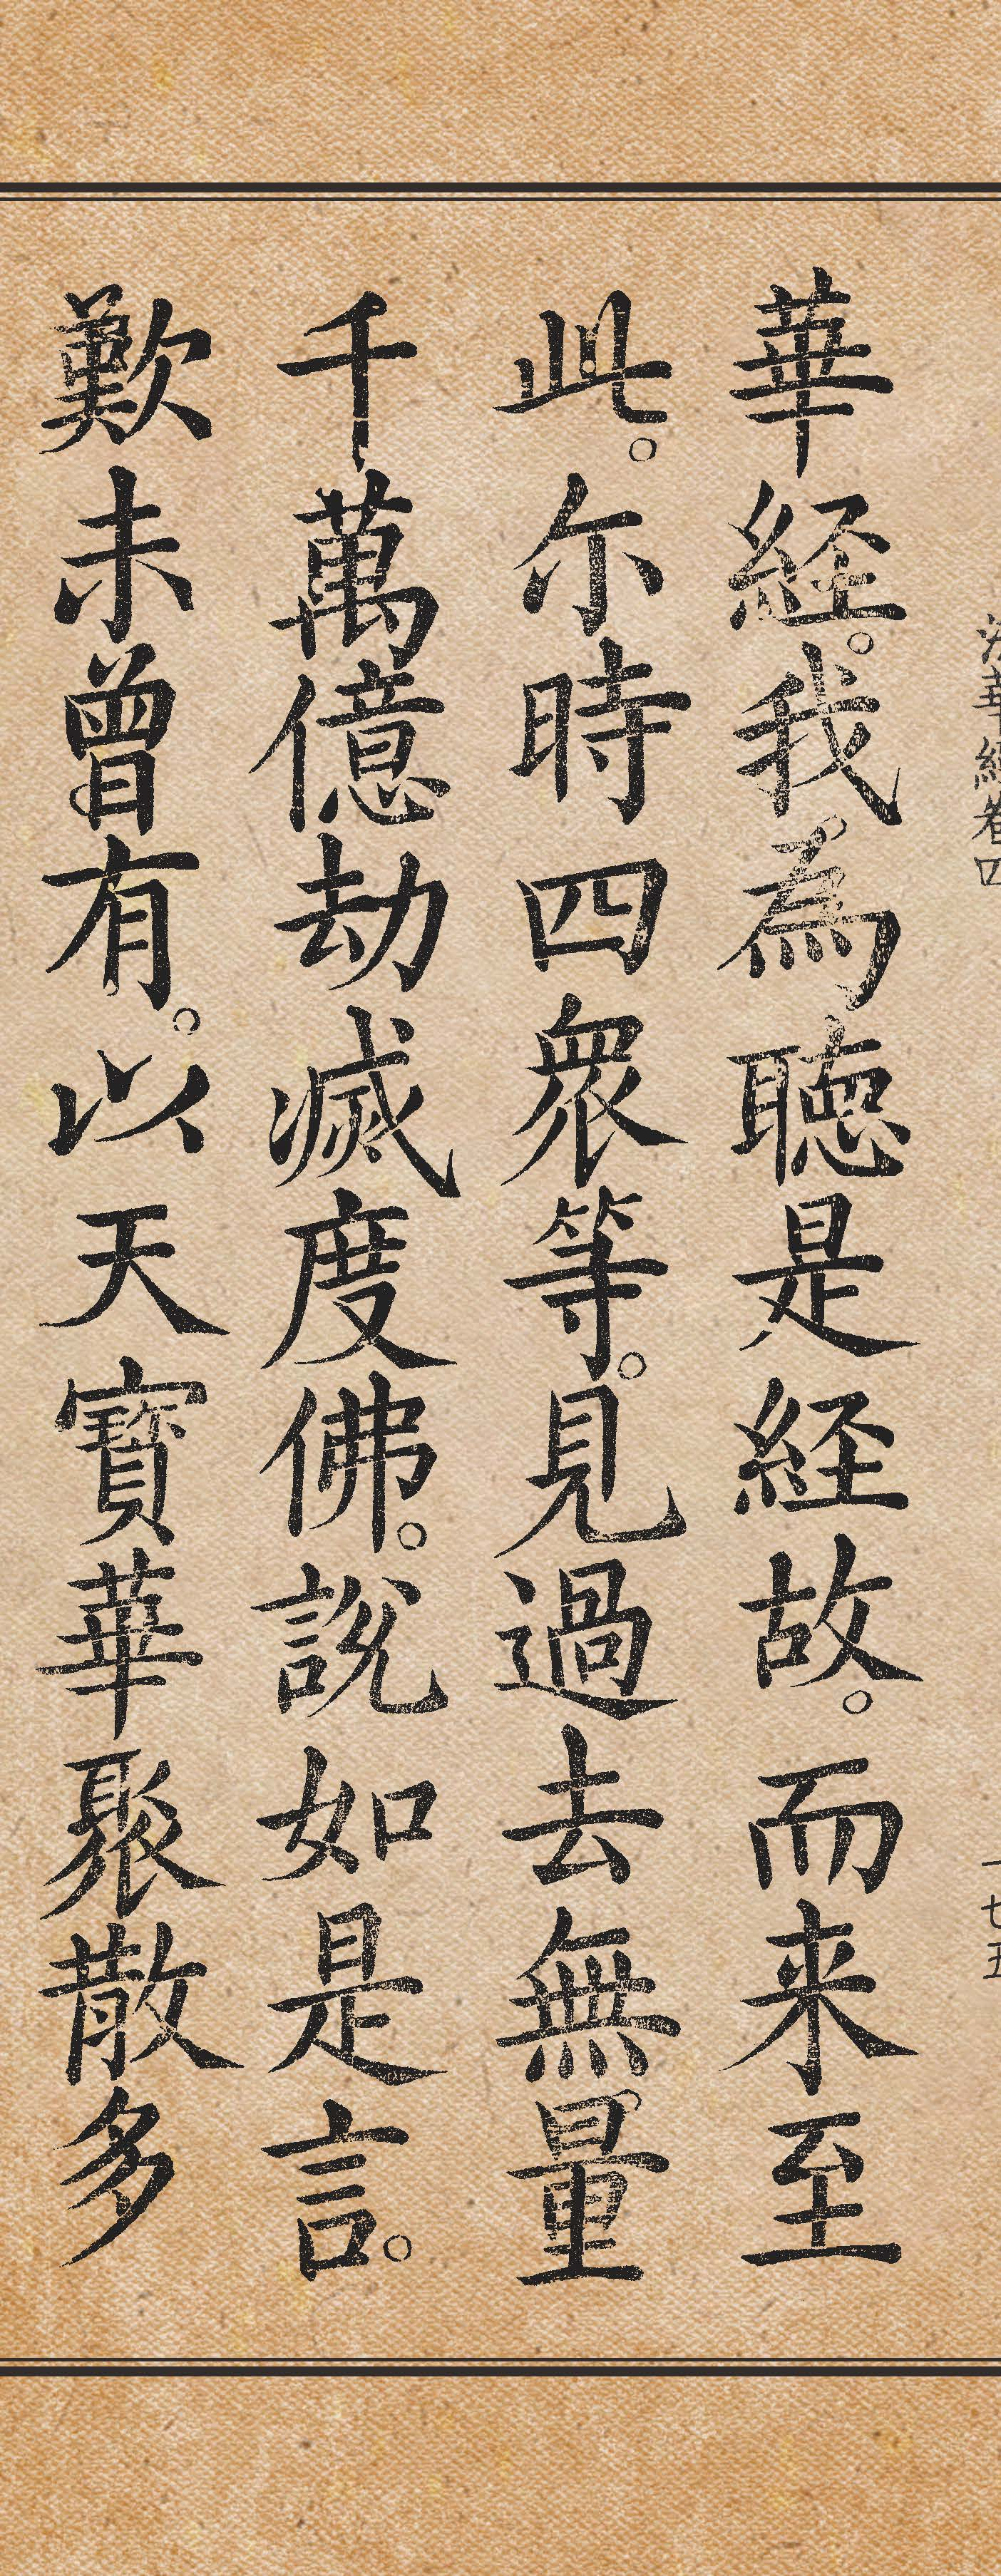 法華經卷四
一七五
華経。我為聴是経故。而来至
此。尒時四衆等。見過去無量
千萬億劫滅度佛。說如是言。
歎未曾有。以天寶華聚散多